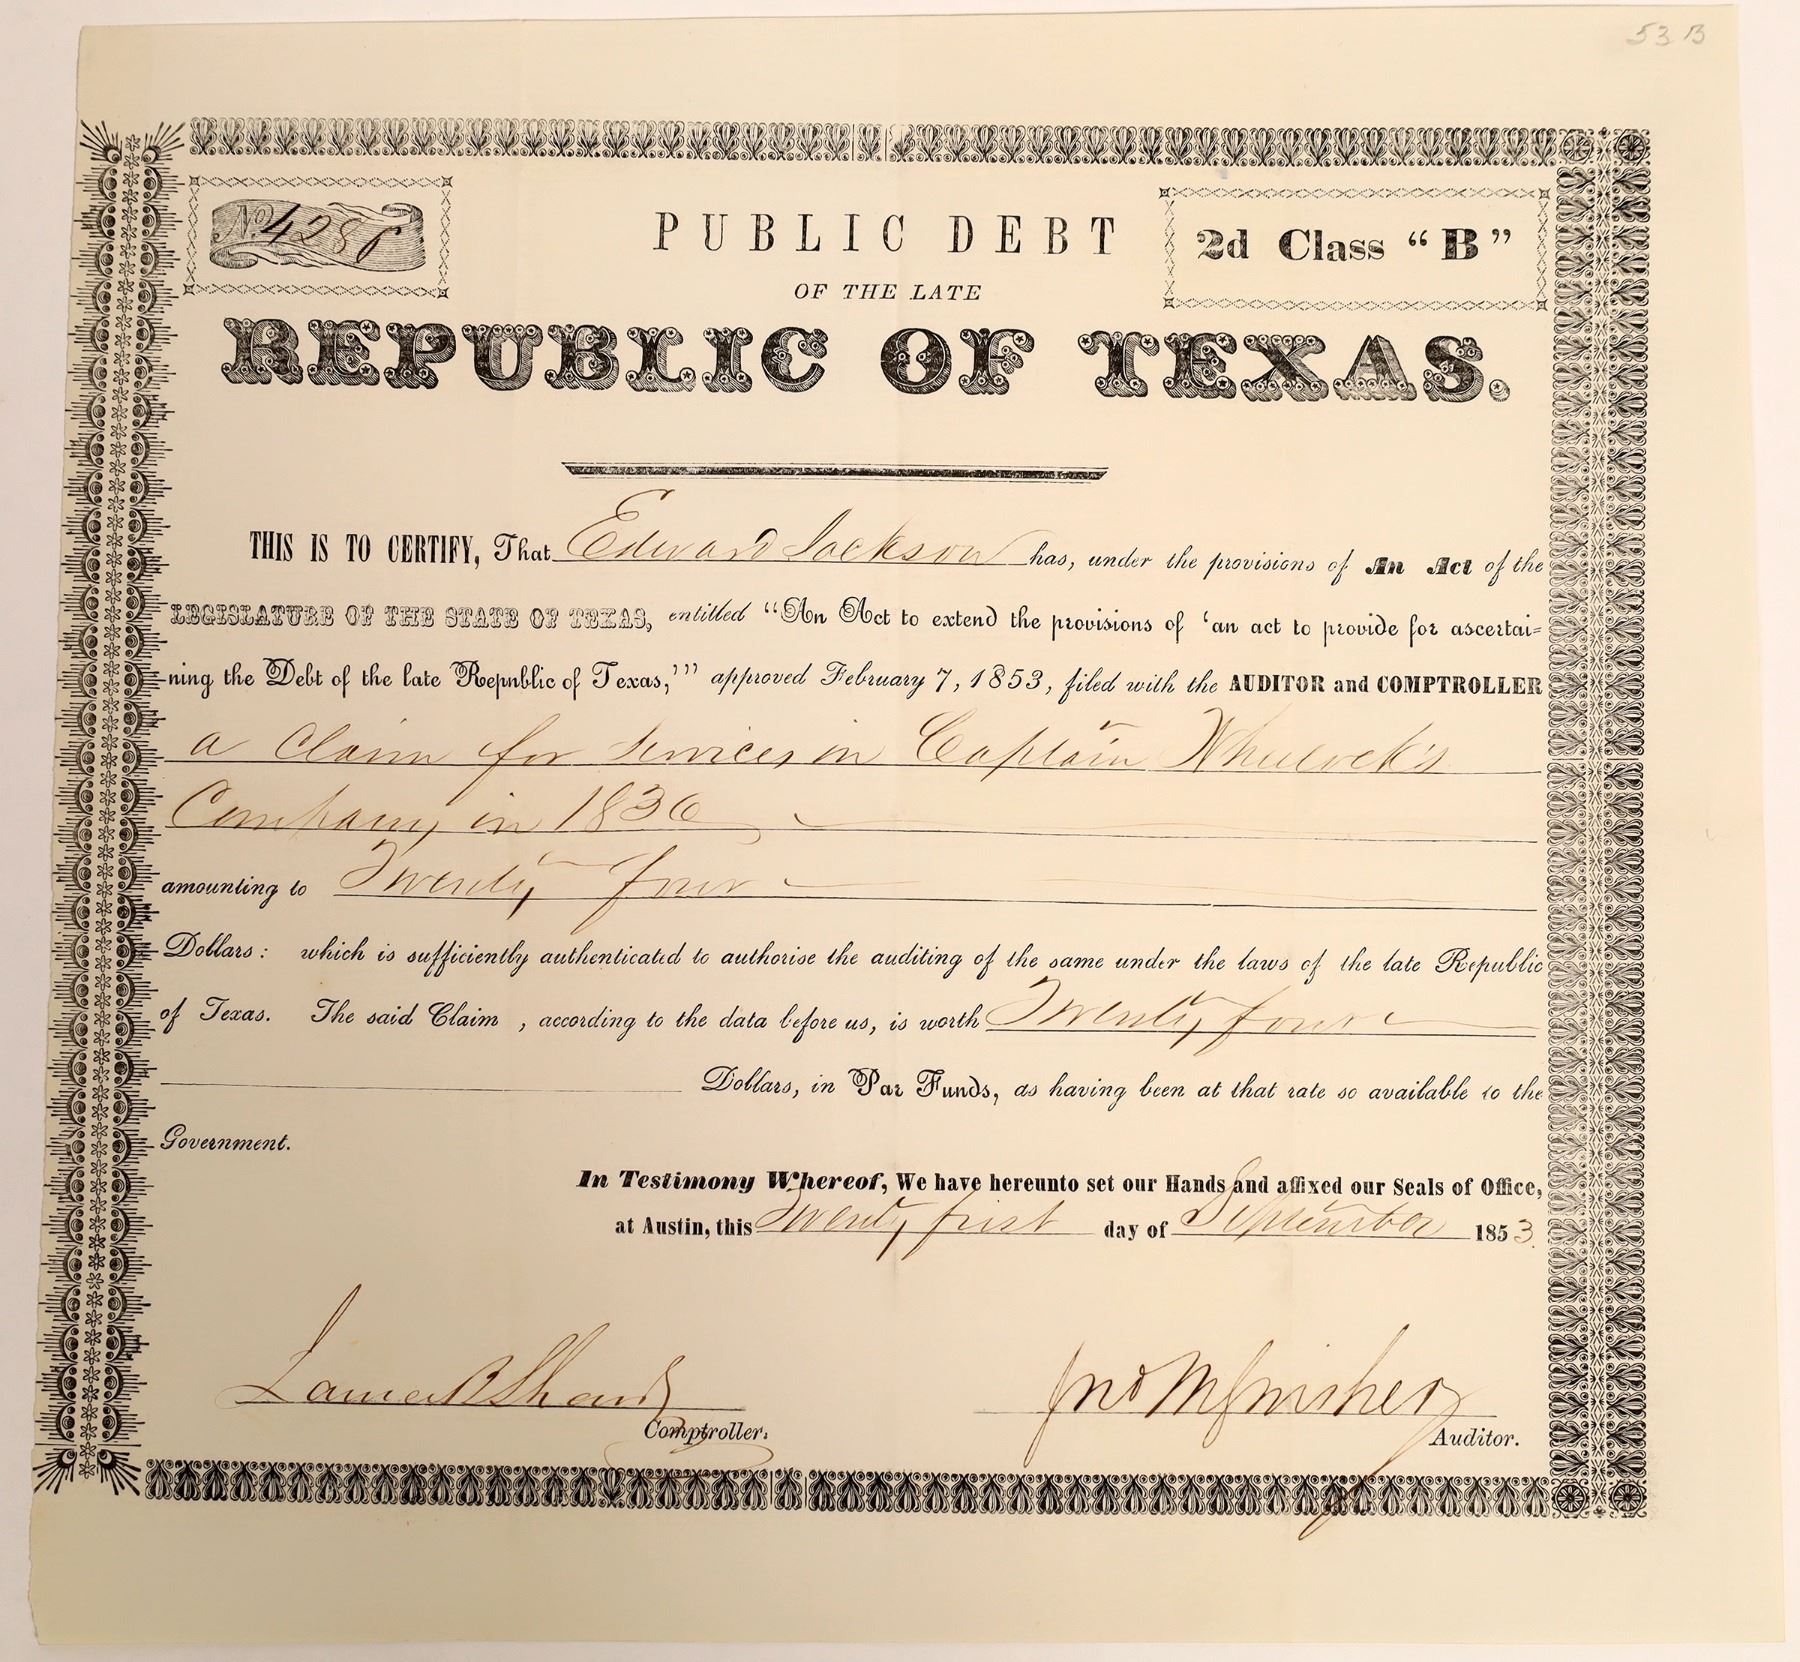 53 B
No. 428
PUBLIC DEBT
2d Class “B”
OF THE LATE
REPUBLIC OF TEXAS.
THIS IS TO CERTIFY, That Edward Jackson has, under the provisions of An Act of the
LEGISLATURE OF THE STATE OF TEXAS, entitled “An Act to extend the provisions of ‘an act to provide for ascertai=
ning the Debt of the late Repnblic of Texas,’” approved February 7, 1853, filed with the AUDITOR and COMPTROLLER
a Claim for services in Captain Wheelock's
Company in 1836
amounting to Twenty four
Dollars: which is sufficiently authenticated to authorise the auditing of the same under the laws of the late Republic
of Texas. The said Claim , according to the data before us, is worth Twenty four
Dollars, in Par Funds, as having been at that rate so available to the
Government.
In Testimony Whereof, We have hereunto set our Hands and affixed our Seals of Office,
at Austin, this Twenty first day of September 1853
James B Shaw
Comptroller.
Jno M Swisher
Auditor.